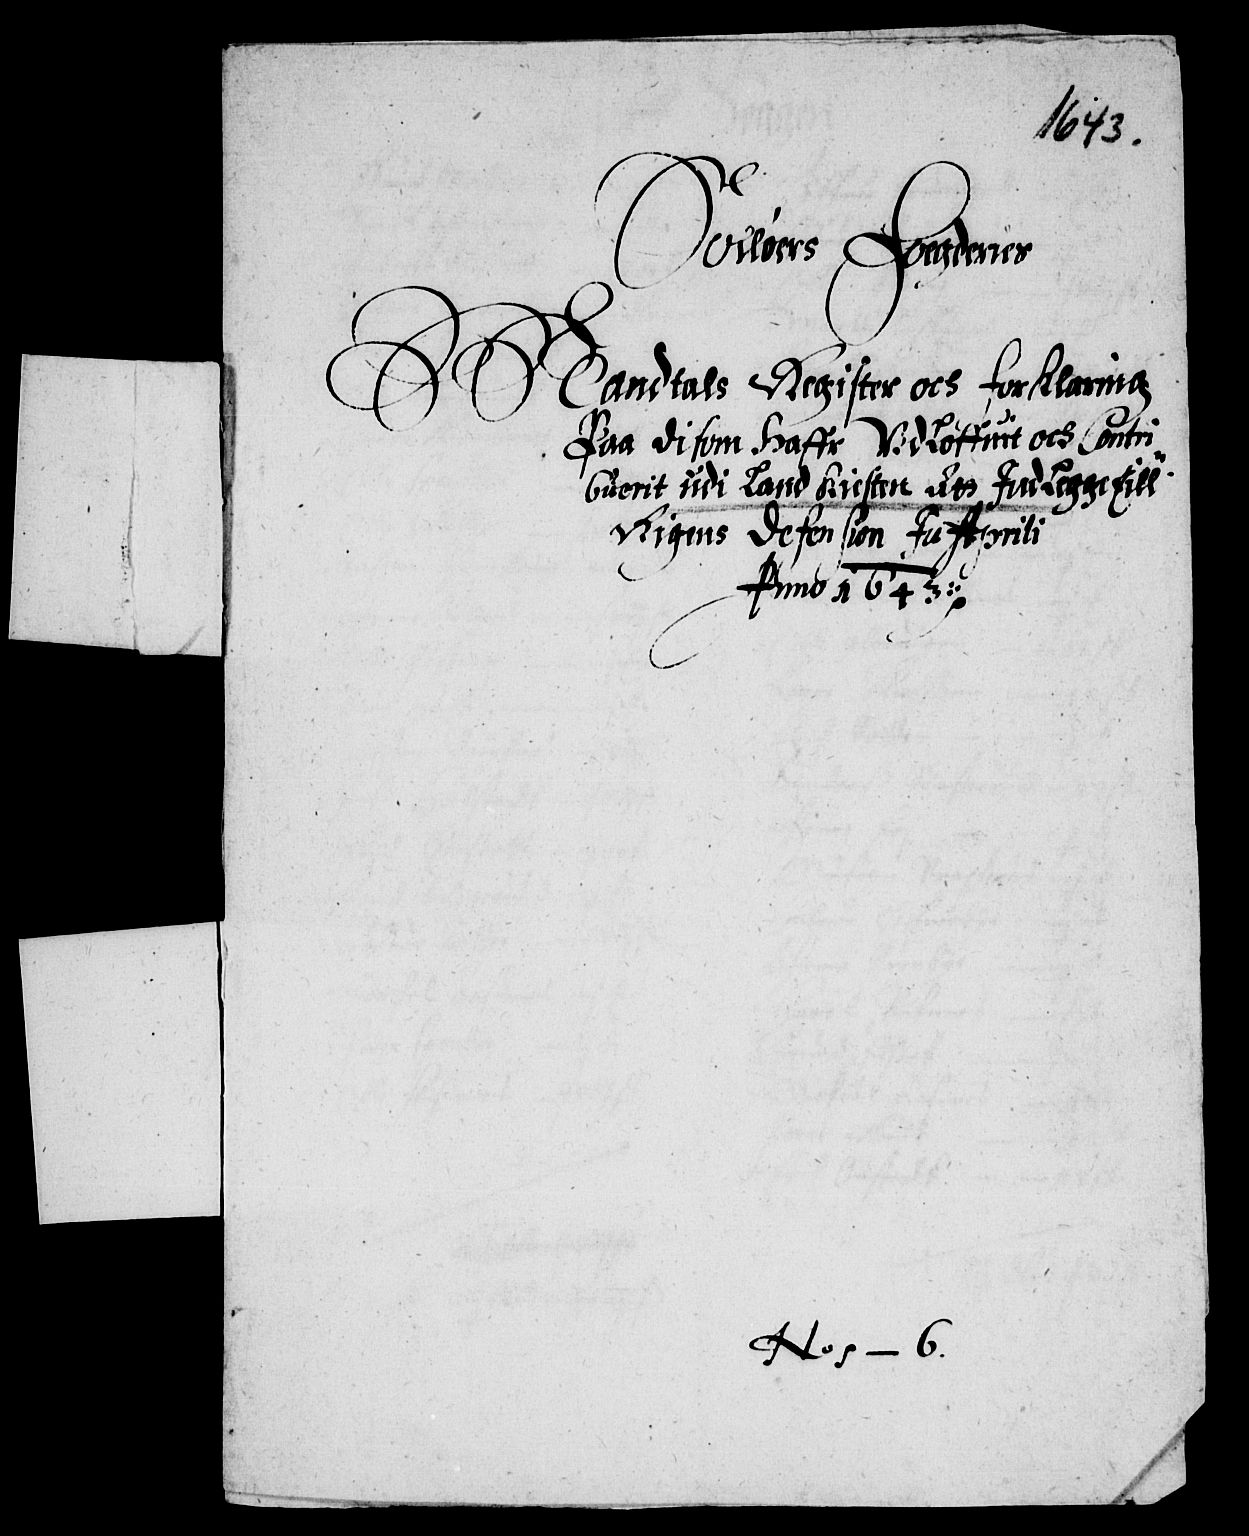 1643.
Souløers Foegderier
Mandtals Register och forklaring
Paa di som haffr Vdløffuit och Contri
buerit udi Land kisten at Indlegge till
Rigens Defension In Aprili
Anno 1643
No 6.